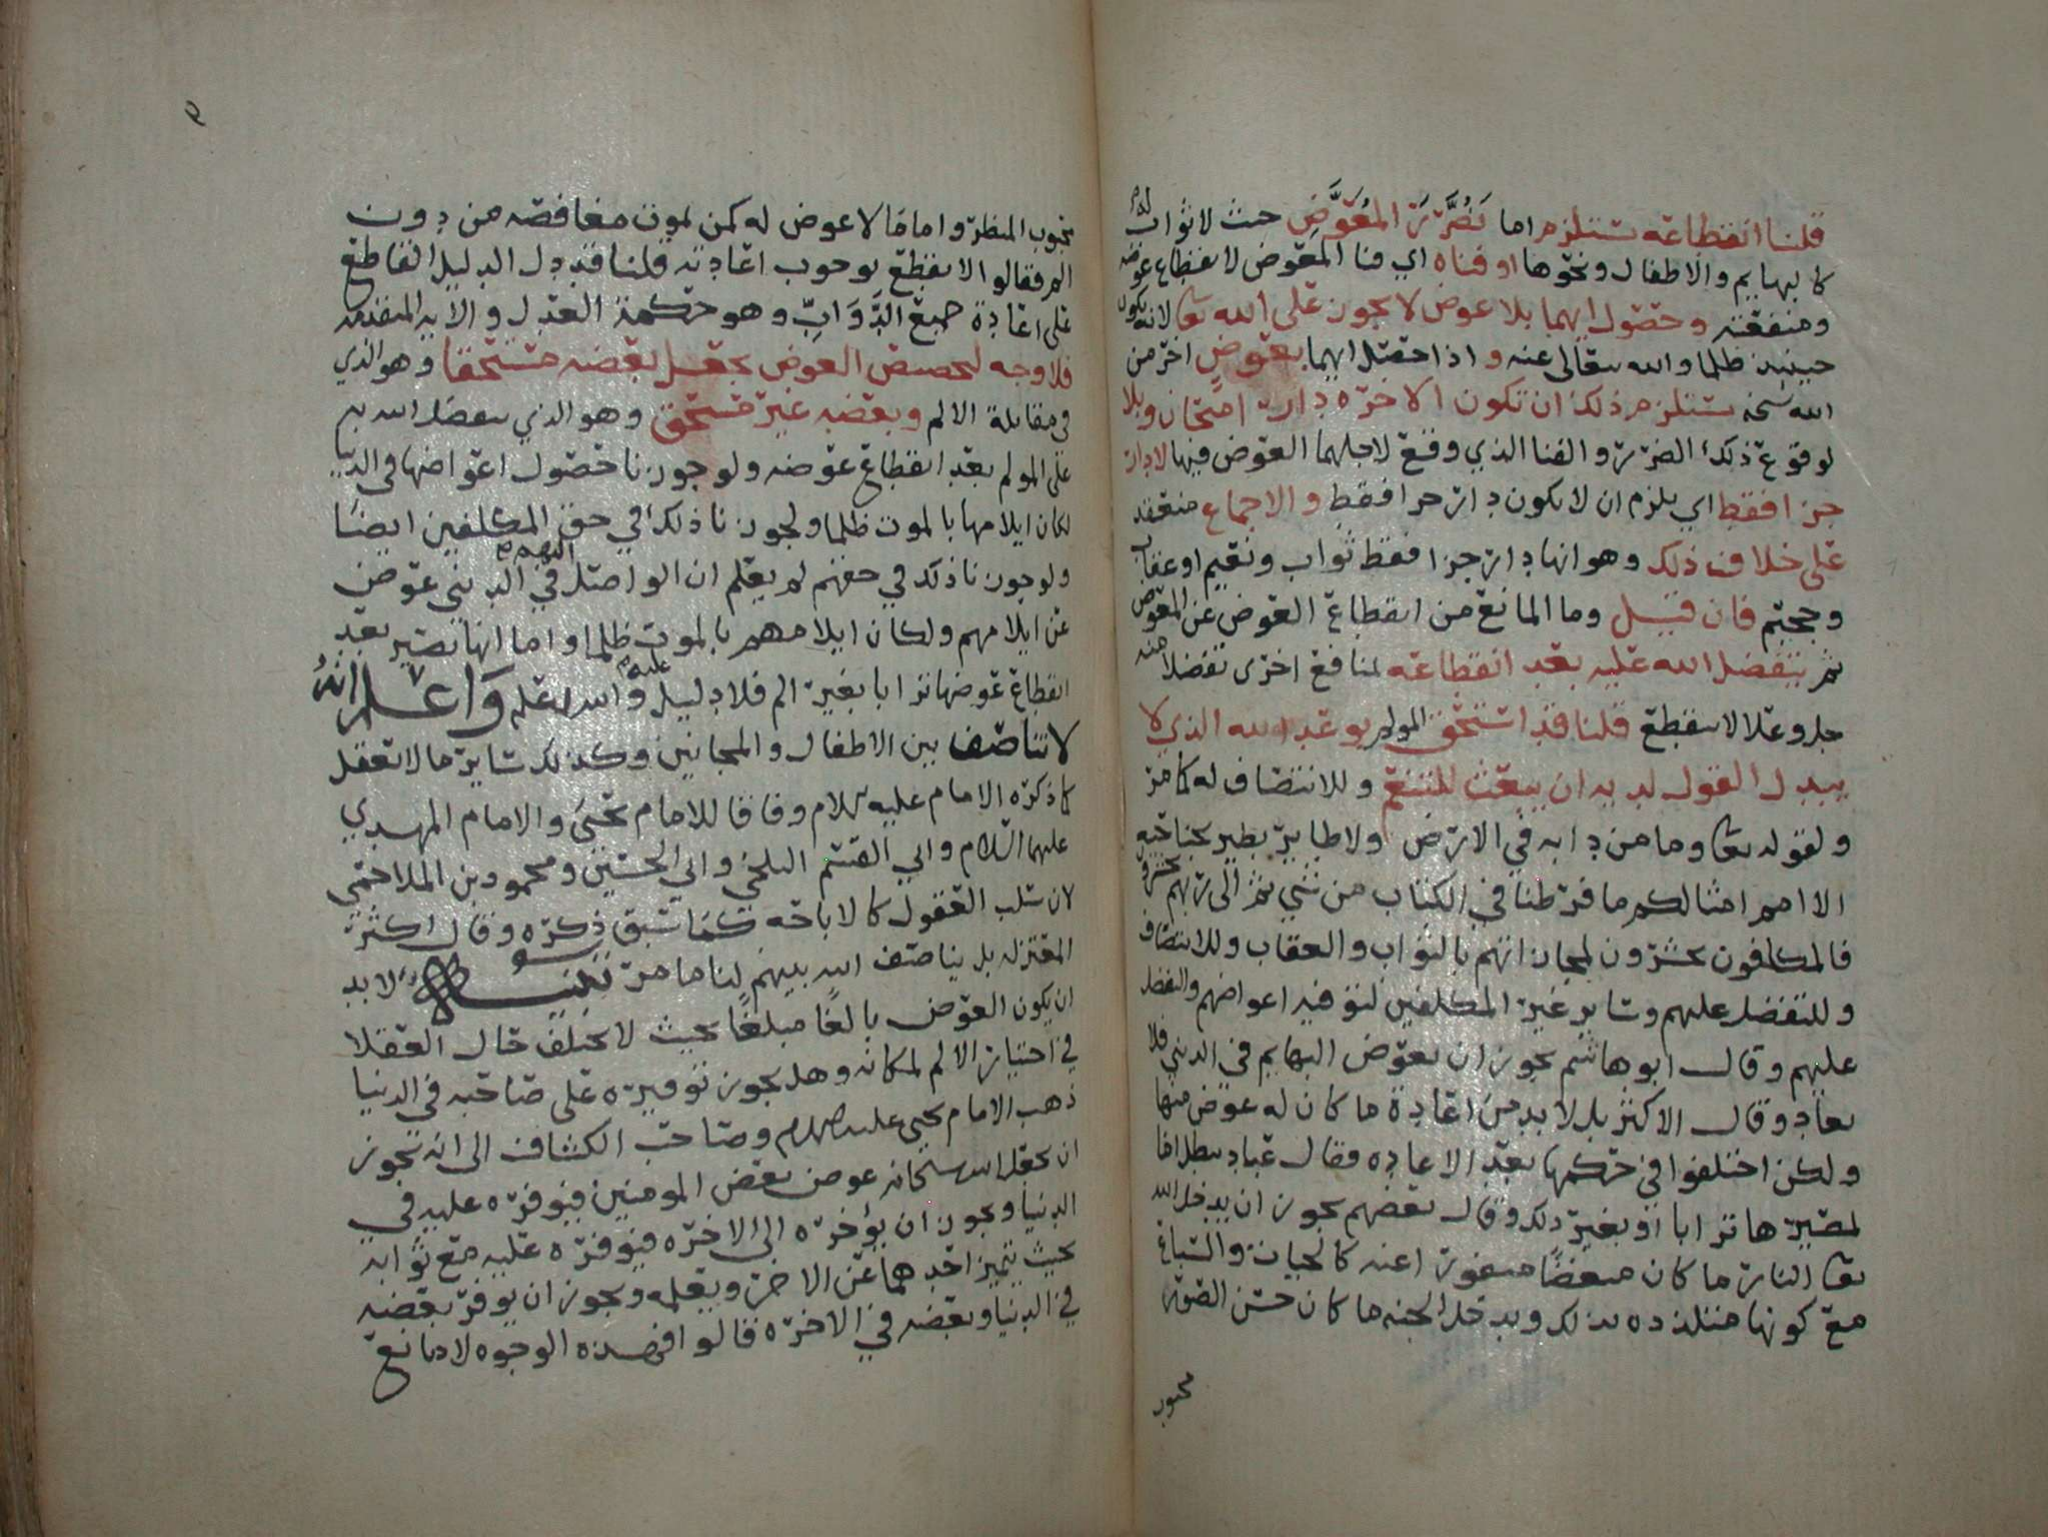 قلنا انقطاعه يستلزم اما تضرر المعوض حيث لا ثواب له
كالبهايم والاطفال ونحوها او فناه اي فنا المعوض لانقطاع عوضه
ومنفعته وحصول ايهما بلا عوض لا يجوز على الله تعا لانه يكون
حينيذ ظلما والله يتعالى عنه واذا حصل ايهما بعوض اخر من
الله سبحنه يستلزم ذلك ان تكون الاخره دار امتحان وبلا
لوقوع ذلك الضرر والفنا الذي وقع لاجلهما العوض فيها لا دار
جزا فقط اي يلزم ان لا يكون دار جزا فقط والاجماع منعقد
على خلاف ذلك وهو انها دار جزا فقط ثواب ونعيم او عقاب
وجحيم فان قيل وما المانع من انقطاع العوض عن المعوض
ثم يتفضل الله عليه بعد انقطاعه لمنافع اخرى تفضلا منه
جل وعلا لا ينقطع قلنا قد استحق المولم بوعد الله الذي لا
يبدل القول لديه ان يبعث للتنعم وللانتصاف له كما مر
ولقوله تعا وما من دابه في الارض ولا طاير يطير بجناحيه
الا امم امثالكم ما فرطنا في الكتاب من شي ثم الى ربهم يحشرون
فالمكلفون يحشرون لمجازاتهم بالثواب والعقاب وللانتصاف
وللتفضل عليهم وساير غير المكلفين لتوفيه اعواضهم والتفضل
عليهم وقال ابو هاشم يجوز ان يعوض البهايم في الدنيى فلا
يعاد وقال الاكثر بل لا بد من اعادة ما كان له عوض منها
ولكن اختلفوا في حكمها بعد الاعاده فقال عباد يبطل اما
لمصيرها ترابا او بغير ذلك وقال بعضهم يجوز ان يدخل الله
تعا النار ما كان مبغضا منفورا عنه كالحيات والسباع
مع كونها متلذذه بذلك ويدخل الجنه ما كان حسن الصوره
محبوب
٩
محبوب المنظر واما ما لا عوض له كمن يموت مغافصه من دون
الم فقالوا لا يقطع بوجوب اعادته قلنا قد دل الدليل القاطع
على اعادة جميع الدواب وهو حكمة العدل والايه المتقدمه
فلا وجه لتخصيص العوض بجعل بعضه مستحقا وهو الذي
في مقابلة الالم وبعضه غير مستحق وهو الذي يتفضل الله به
على المولم بعد انقطاع عوضه ولو جوزنا حصول اعواضها في الدنيا
لكان ايلامها بالموت ظلما ولجوزنا ذلك في حق المكلفين ايضا
ولو جوزنا ذلك في حقهم لم يعلم ان الواصل اليهم في الدنيى عوض
عن ايلامهم ولكان ايلامهم بالموت ظلما واما انها تصير بعد
انقطاع عوضها ترابا بغير الم فلا دليل عليه والله اعلم واعلم انه
لا تناصف بين الاطفال والمجانين وكذلك ساير ما لا تعقل
كما ذكره الامام عليه السلام وفاقا للامام يحيى والامام المهدي
عليهما السلام وابي القسم البلخي وابي الحسين ومحمود بن الملاحمي
لان سلب العقول كالاباحه كما سبق ذكره وقال اكثر
المعتزله بل يناصف الله بينهم لنا ما مر تنبيه ولا بد
ان يكون العوض بالغا مبلغا بحيث لا يختلف حال العقلا
في اختيار الالم لمكانه وهل يجوز توفيره على صاحبه في الدنيا
ذهب الامام يحيى عليه السلام وصاحب الكشاف الى انه يجوز
ان يجعل الله سبحانه عوض بعض المومنين فيوفره عليه في
الدنيا ويجوز ان يؤخره الى الاخره فيوفره عليه مع ثوابه
بحيث يتميز احدهما عن الاخر ويعلمه ويجوز ان يوفر بعضه
في الدنيا وبعضه في الاخره قالوا فهذه الوجوه لا مانع